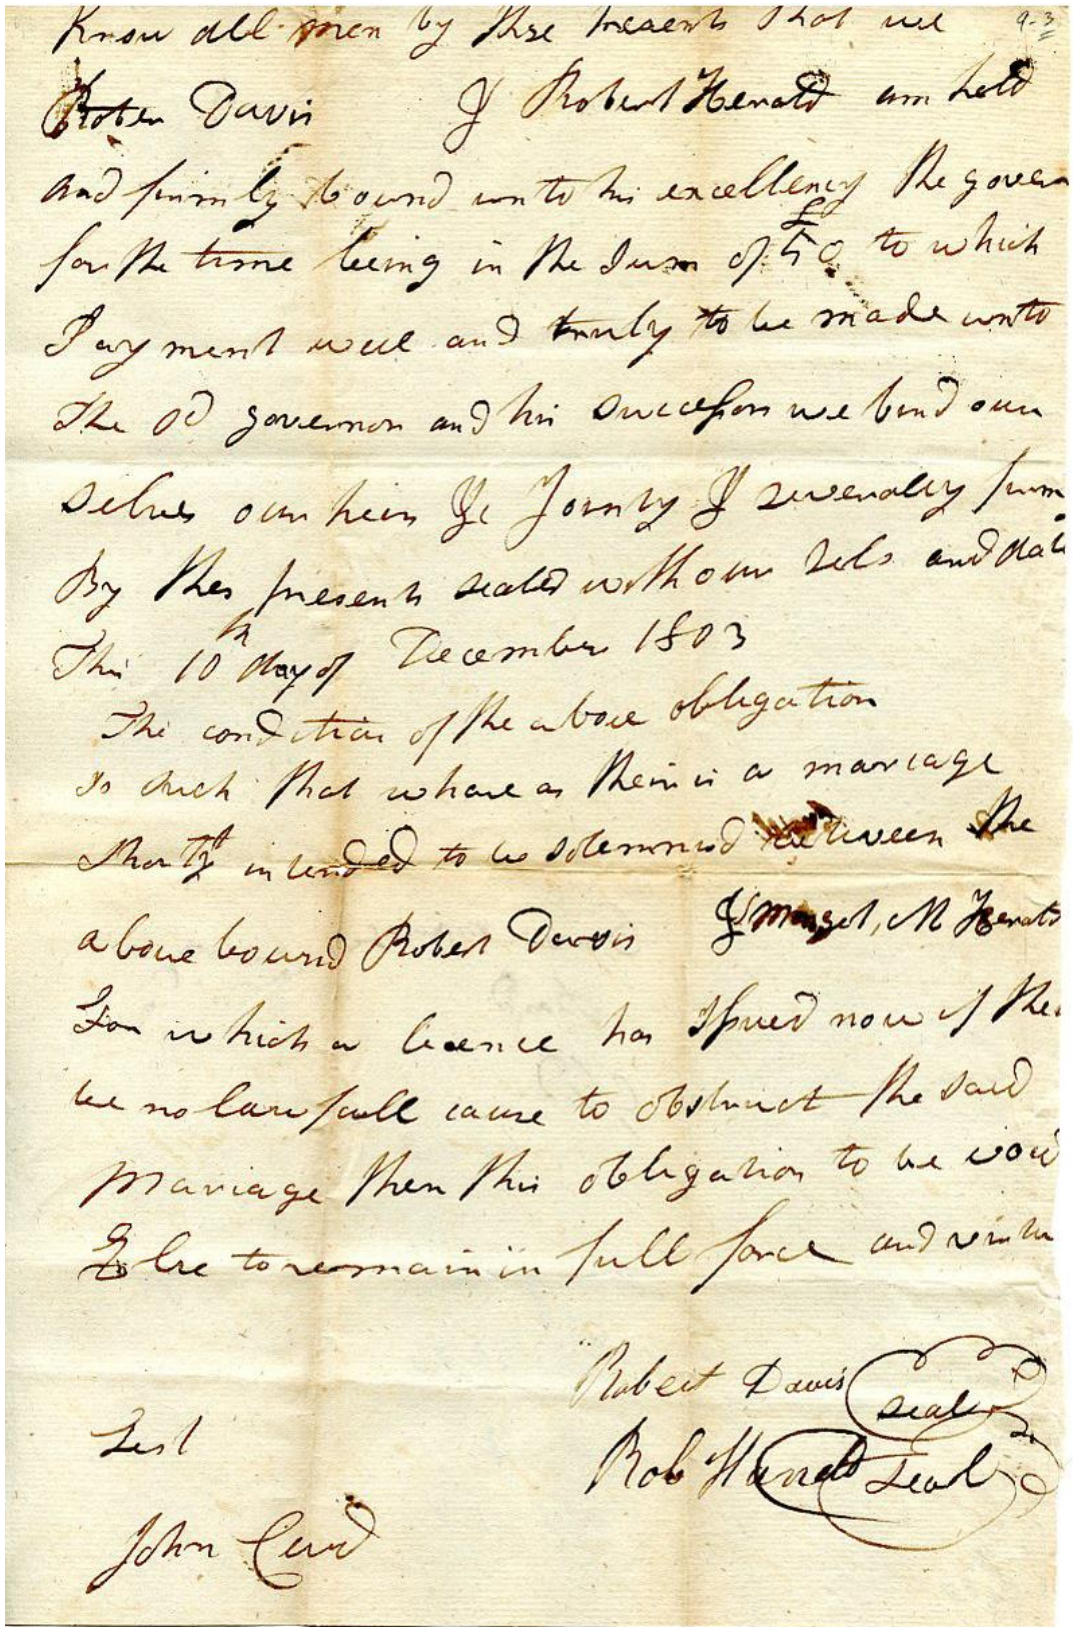 Know all men by these presents that we 9-3
Robert Davis & Robert Herald am held
and firmly bound unto his excellency the gover
for the time being in the Sum of £50 to which
Payment well and truly to be made unto
The sd governor and his successors we bind our
selves our heirs &c Jointly & severally firm
By thes presents sealed with our sels and date
This 10th day of December 1803
The condition of the above obligation
Is such that whare as their is a marriage
Shortly intended to be solemnised between the
above bound Robert Davis & M Herald
For which a licence has Issued now if ther
be no lawfull cause to obstruct the said
Marriage then this obligation to be void
Else to remain in full force and virtu
Robert Davis seal
Test
Rob Harrald seal
John Curd